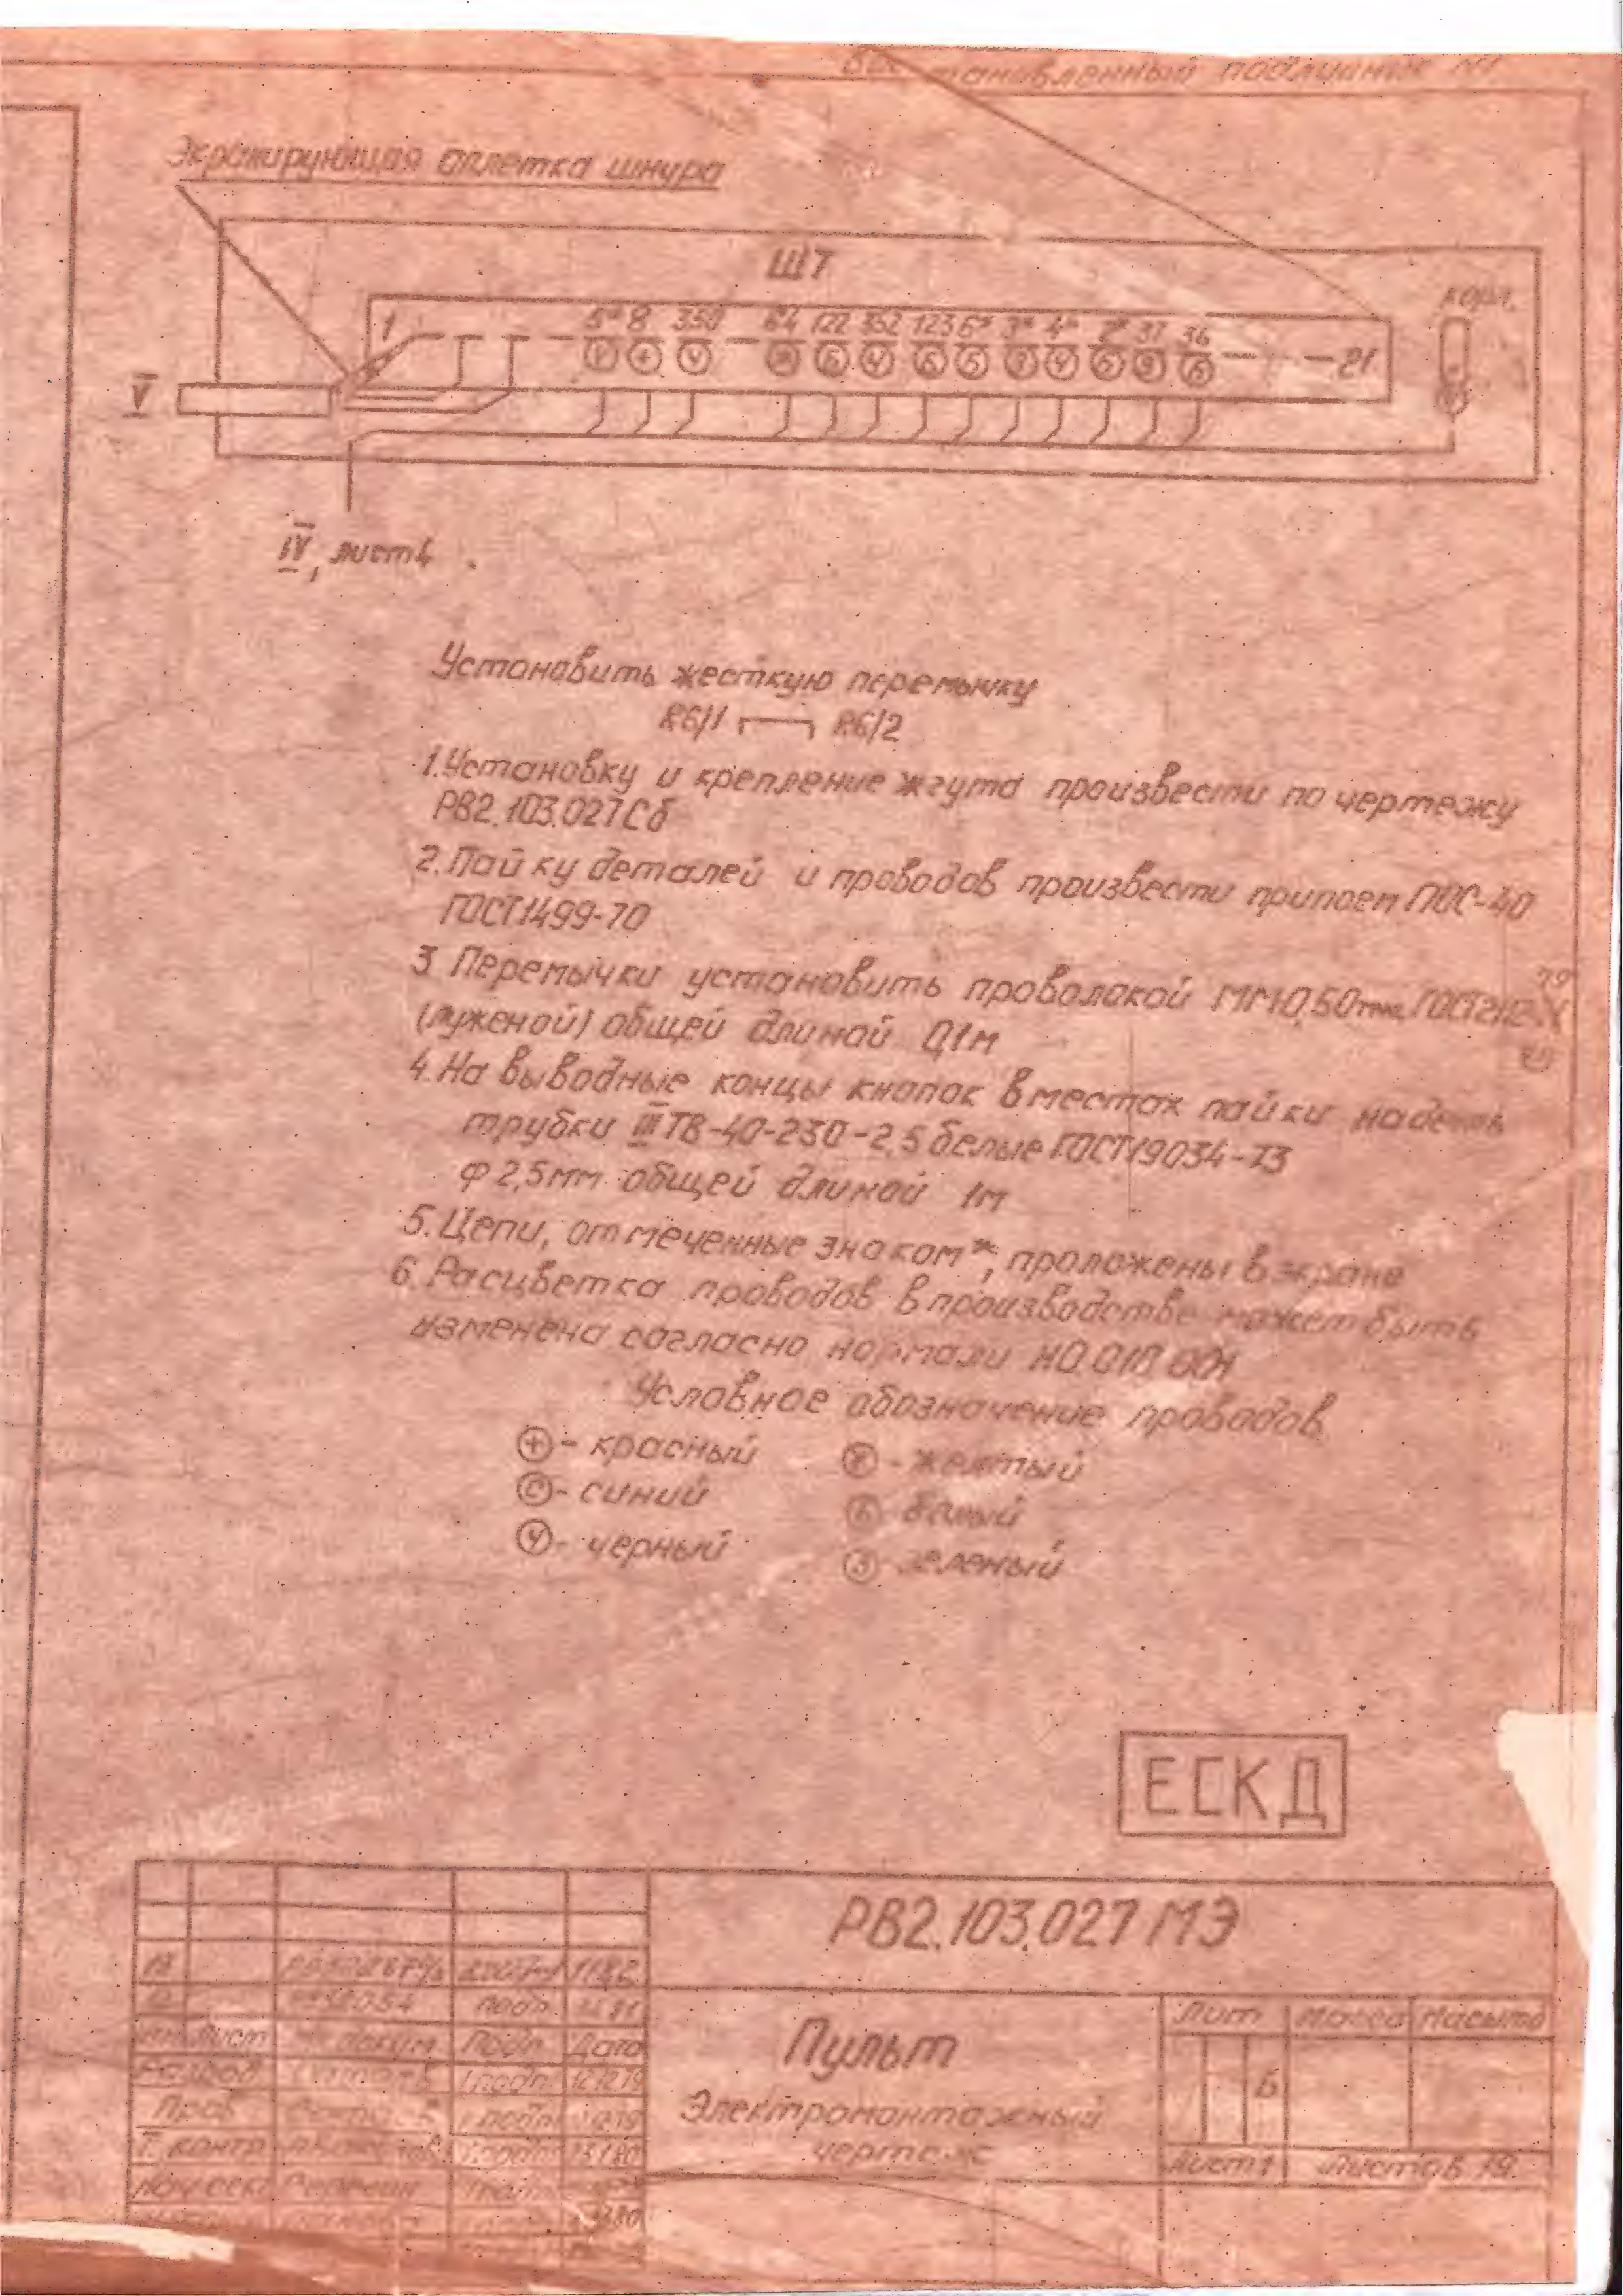 тановленный подлинник №1
Экранирующая оплетка шнура
Ш7
корп.
1 5* 8 350 64 122 352 123 6* 3* 4* 2* 37 36
+ Ч Б Ч Б Ч 21
V
IV, лист 4
Установить жесткую перемычку
R6/1 R6/2
1. Установку и крепление жгута произвести по чертежу
РВ2.103.027Сб
2. Пайку деталей и проводов произвести припоем ПОС-40
ГОСТ1499-70
3 Перемычки установить проволокой ММ0,50 ГОСТ2112-
79
(луженой) общей длиной 0,1м
4. На выводные концы кнопок в местах пайки надеть
трубки III ТВ-40-230-2,5 белые ГОСТ19034-73
ф 2,5мм общей длиной 1м
5. Цепи, отмеченные знаком*, проложены в экране
6. Расцветка проводов в производстве может быть
изменена согласно нормали НО.018.001
Условное обозначение проводов
+ - красный Ж - желтый
С - синий Б белый
Ч - черный З зеленый
ЕСКД
РВ2.103.027 МЭ
Пульт
Электромонтажный
чертеж
Лит Масса Масштб
Б
Лист 1 Листов 19
18 1182
подп.
Лист докум Подп. Дата
Разраб
Пров
Т. контр